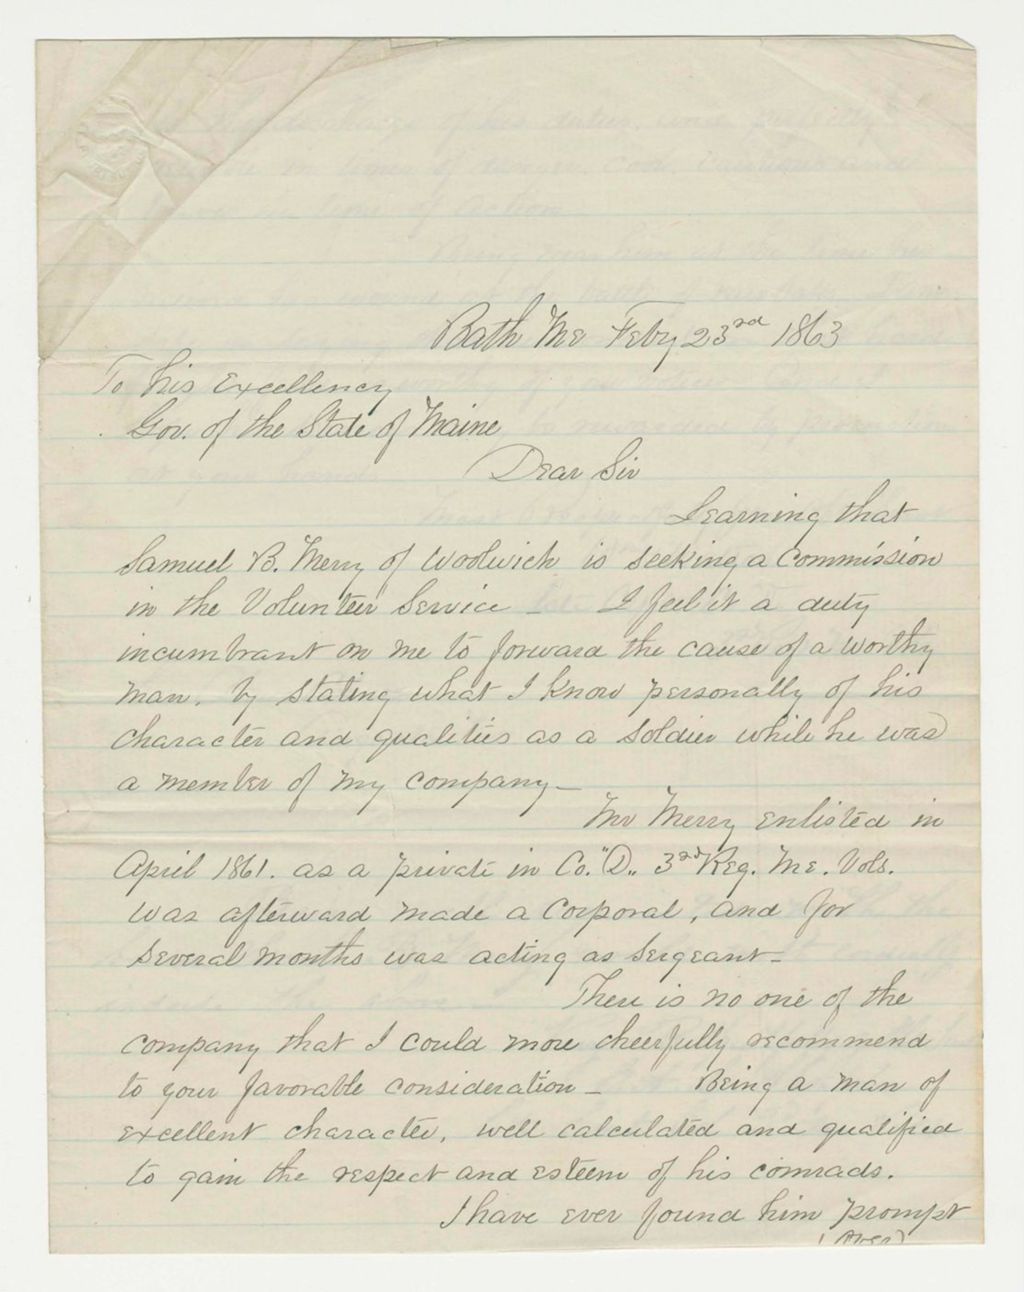 Bath Me Feby 23rd 1863
To his Excellency
Gov. of the State of Maine
Dear Sir
Learning that
Samuel B. Merry of Woolwich is seeking a Commission
in the Volunteer Service _ I feel it a duty
incumbrant on me to forward the cause of a worthy
man, by stating what I know personally of his
character and qualities as a soldier while he was
a member of my company_
Mr Merry enlisted in
April 1861. as a private in Co. "D" 3rd Reg. Me. Vols.
was afterward made a Corporal, and for
several months was acting as Sergeant_
There is no one of the
company that I could more cheerfully recommend
to your favorable consideration_ Being a man of
excellent character, well calculated and qualified
to gain the respect and esteem of his comrads.
I have ever found him prompt
(Over)